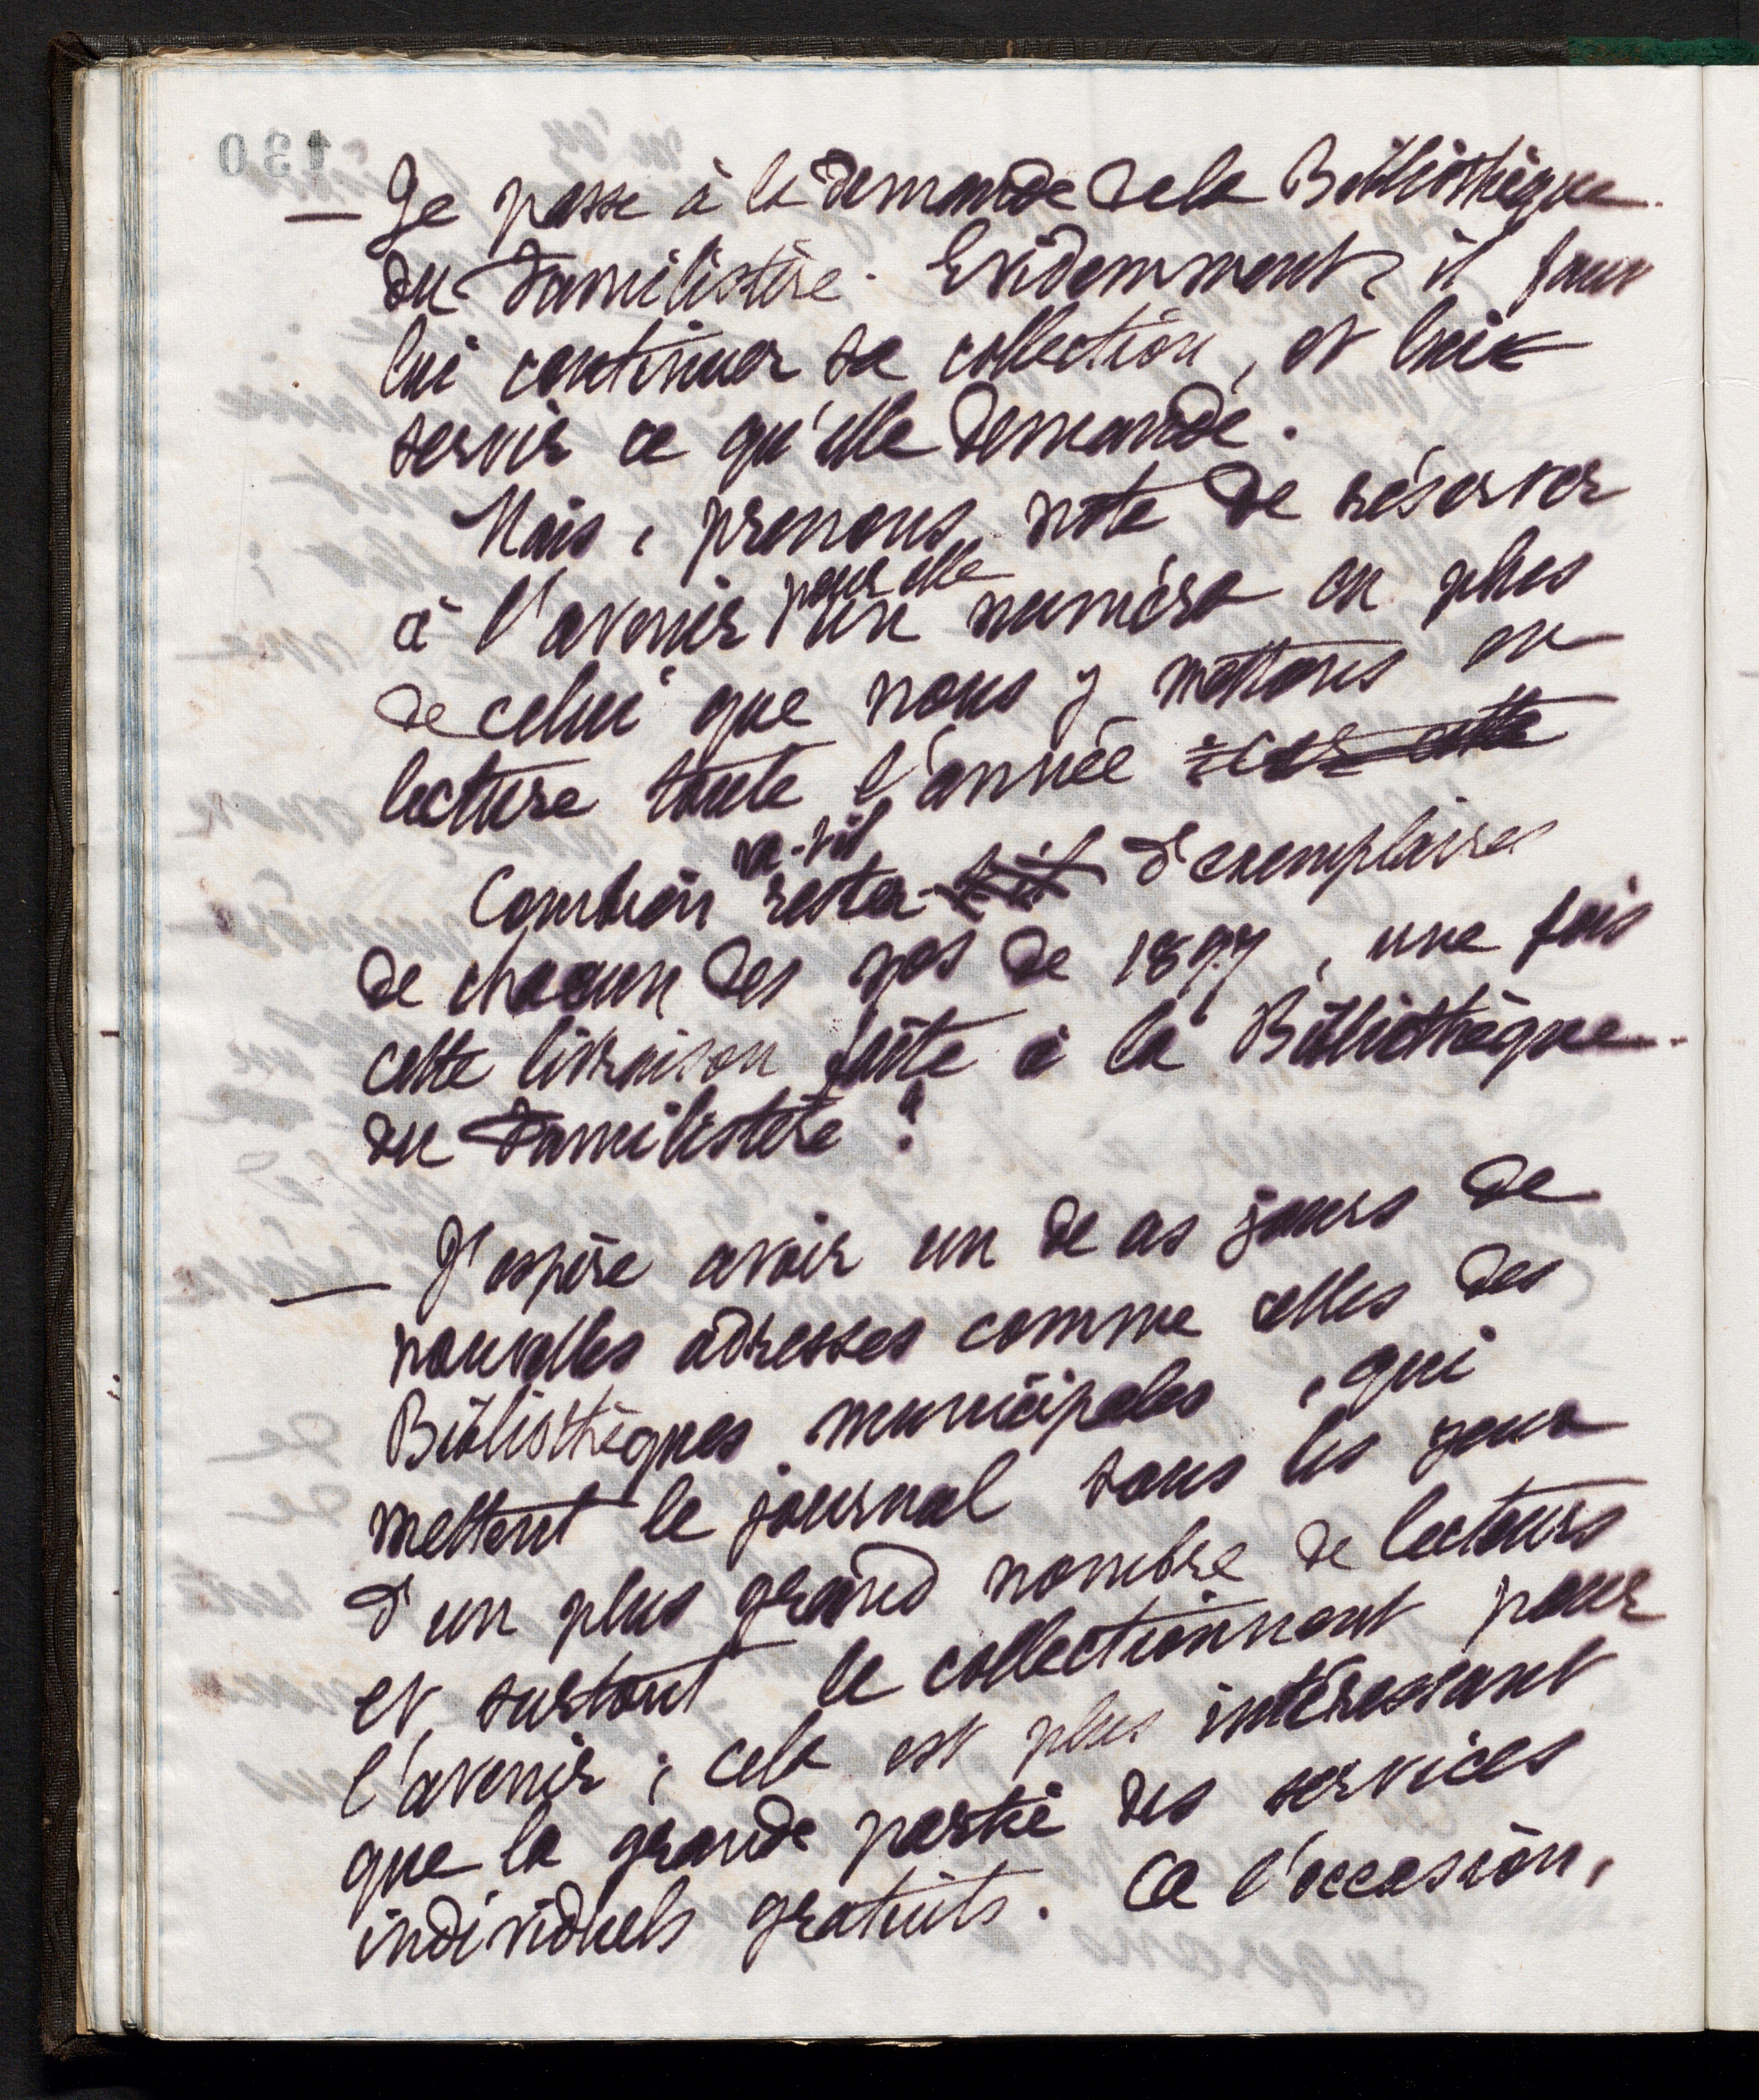 130
— Je passe à la demande de la Bibliothèque
du Familistère. Evidemment, il faut
lui continuer sa collection, et lui
servir ce qu'elle demande.
Mais, prenons note de réserver
pour elle
à l'avenir un numéro en plus
de celui que nous y mettons en
lecture toute l'année : car cette
va-t-il
Combien rester-t-il d'exemplaires
de chacun des nos de 1897, une fois
cette livraison faite à la Bibliothèque
du Familistère ?
— J'espère avoir un de ces jours de
nouvelles adresses comme celles des
Bibliothèques municipales, qui
mettent le journal sous les yeux
d'un plus grand nombre de lecteurs
et surtout le collectionnent pour
l'avenir ; cela est plus intéressant
que la grande partie des services
individuels gratuits. A l'occasion,